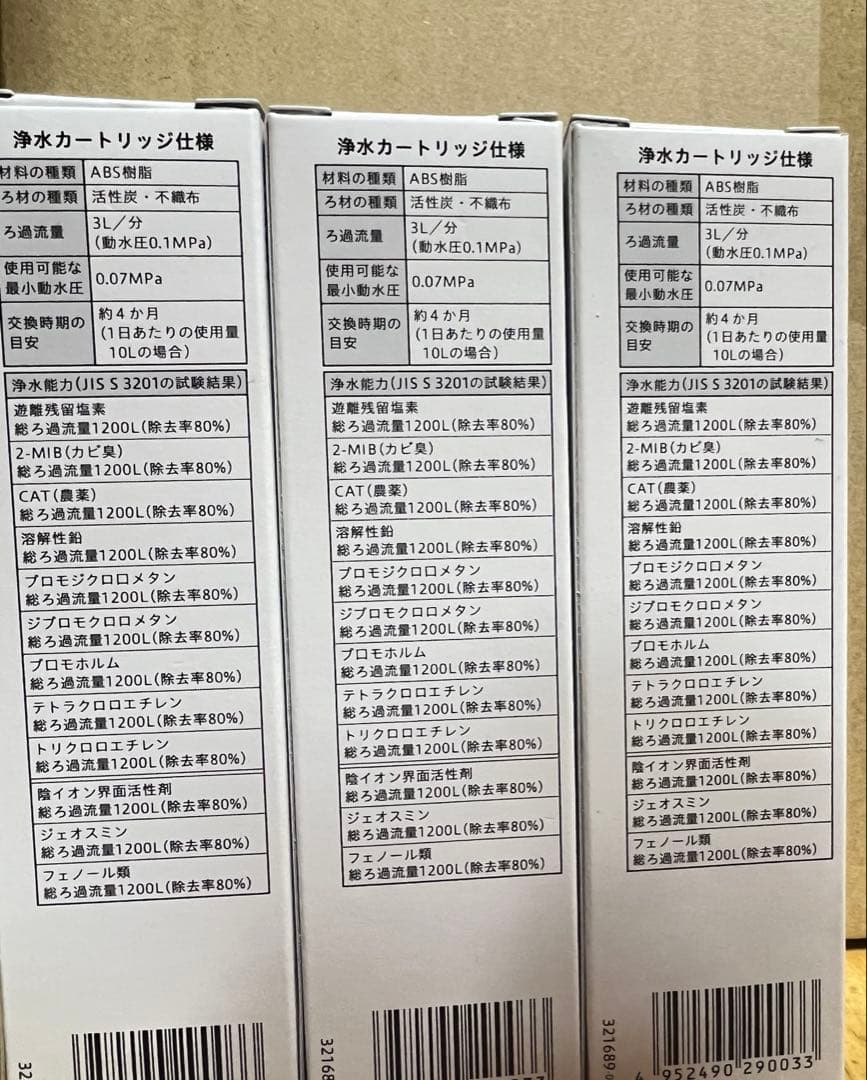 浄水カートリッジ仕様
材料の種類 ABS樹脂
ろ材の種類 活性炭・不織布
ろ過流量 3L／分
(動水圧0.1MPa)
使用可能な
最小動水圧 0.07MPa
交換時期の
目安 約4か月
(1日あたりの使用量
10Lの場合)
浄水能力(JIS S 3201の試験結果)
遊離残留塩素
総ろ過流量1200L(除去率80%)
2-MIB(カビ臭)
総ろ過流量1200L(除去率80%)
CAT(農薬)
総ろ過流量1200L(除去率80%)
溶解性鉛
総ろ過流量1200L(除去率80%)
ブロモジクロロメタン
総ろ過流量1200L(除去率80%)
ジブロモクロロメタン
総ろ過流量1200L(除去率80%)
ブロモホルム
総ろ過流量1200L(除去率80%)
テトラクロロエチレン
総ろ過流量1200L(除去率80%)
トリクロロエチレン
総ろ過流量1200L(除去率80%)
陰イオン界面活性剤
総ろ過流量1200L(除去率80%)
ジェオスミン
総ろ過流量1200L(除去率80%)
フェノール類
総ろ過流量1200L(除去率80%)
浄水カートリッジ仕様
材料の種類 ABS樹脂
ろ材の種類 活性炭・不織布
ろ過流量 3L／分
(動水圧0.1MPa)
使用可能な
最小動水圧 0.07MPa
交換時期の
目安 約4か月
(1日あたりの使用量
10Lの場合)
浄水能力(JIS S 3201の試験結果)
遊離残留塩素
総ろ過流量1200L(除去率80%)
2-MIB(カビ臭)
総ろ過流量1200L(除去率80%)
CAT(農薬)
総ろ過流量1200L(除去率80%)
溶解性鉛
総ろ過流量1200L(除去率80%)
ブロモジクロロメタン
総ろ過流量1200L(除去率80%)
ジブロモクロロメタン
総ろ過流量1200L(除去率80%)
ブロモホルム
総ろ過流量1200L(除去率80%)
テトラクロロエチレン
総ろ過流量1200L(除去率80%)
トリクロロエチレン
総ろ過流量1200L(除去率80%)
陰イオン界面活性剤
総ろ過流量1200L(除去率80%)
ジェオスミン
総ろ過流量1200L(除去率80%)
フェノール類
総ろ過流量1200L(除去率80%)
32168
浄水カートリッジ仕様
材料の種類 ABS樹脂
ろ材の種類 活性炭・不織布
ろ過流量 3L／分
(動水圧0.1MPa)
使用可能な
最小動水圧 0.07MPa
交換時期の
目安 約4か月
(1日あたりの使用量
10Lの場合)
浄水能力(JIS S 3201の試験結果)
遊離残留塩素
総ろ過流量1200L(除去率80%)
2-MIB(カビ臭)
総ろ過流量1200L(除去率80%)
CAT(農薬)
総ろ過流量1200L(除去率80%)
溶解性鉛
総ろ過流量1200L(除去率80%)
ブロモジクロロメタン
総ろ過流量1200L(除去率80%)
ジブロモクロロメタン
総ろ過流量1200L(除去率80%)
ブロモホルム
総ろ過流量1200L(除去率80%)
テトラクロロエチレン
総ろ過流量1200L(除去率80%)
トリクロロエチレン
総ろ過流量1200L(除去率80%)
陰イオン界面活性剤
総ろ過流量1200L(除去率80%)
ジェオスミン
総ろ過流量1200L(除去率80%)
フェノール類
総ろ過流量1200L(除去率80%)
321689
4 952490 290033